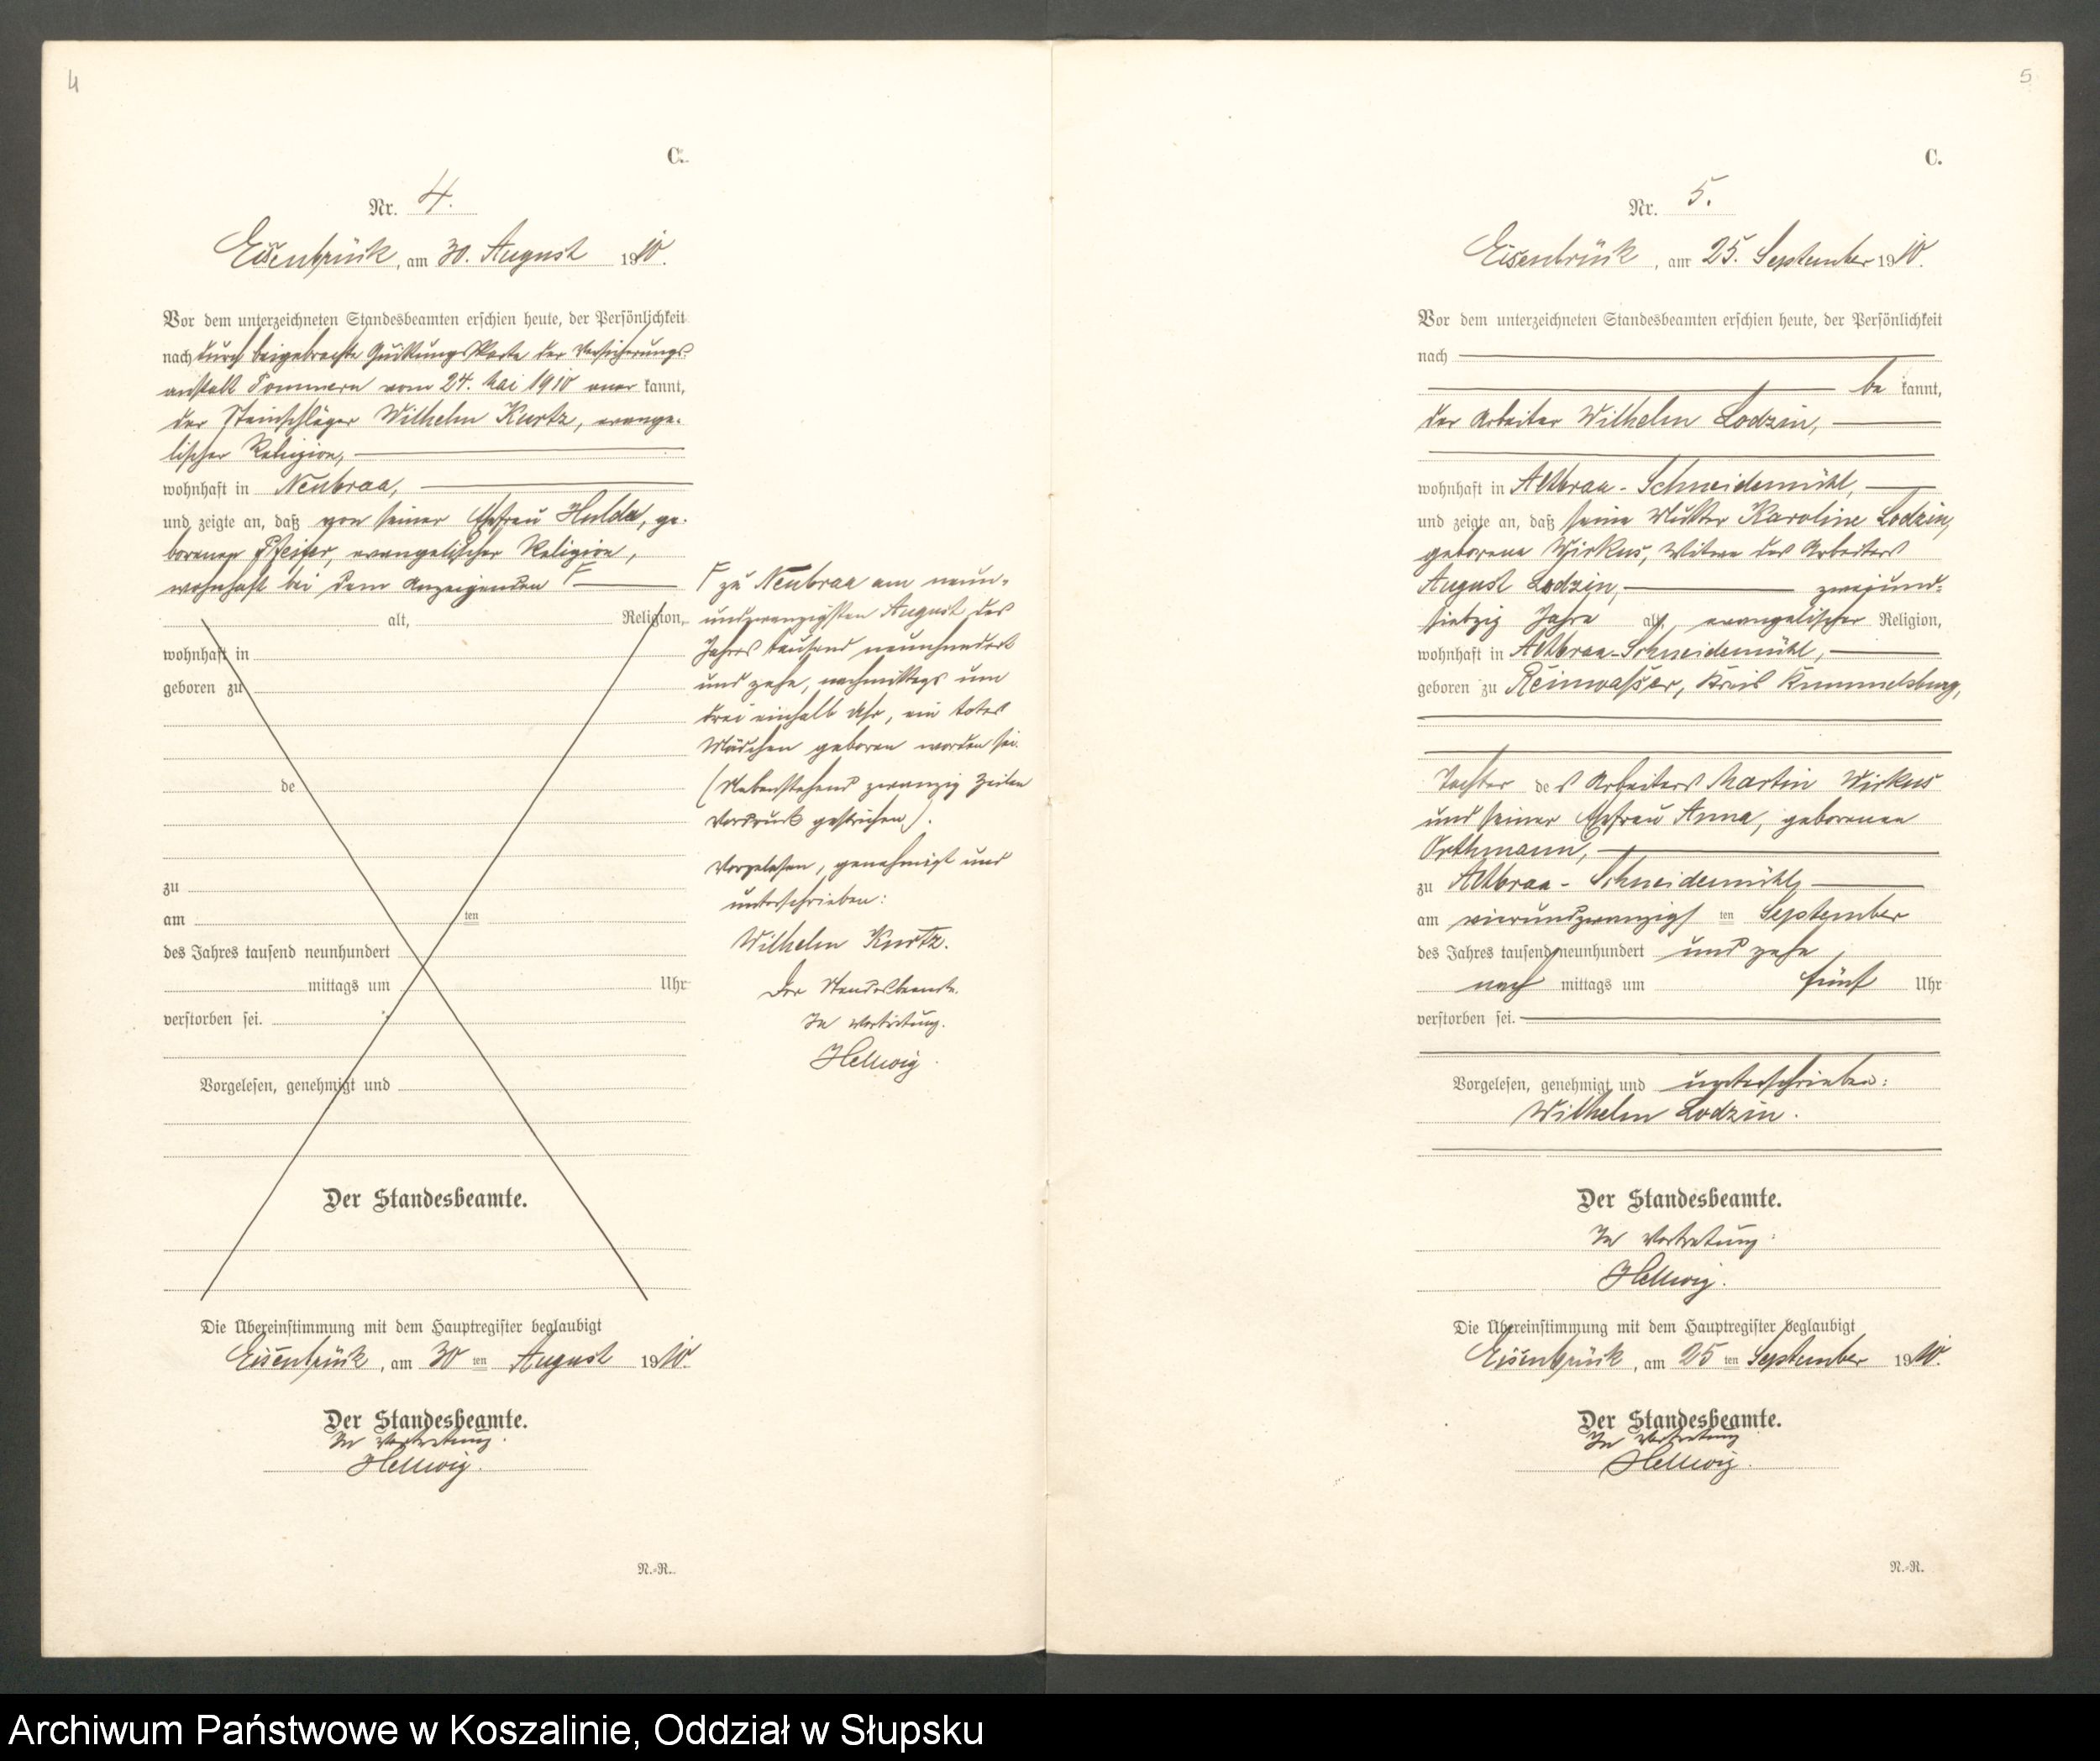 4
C.
Nr. 4.
Eisenbrück, am 30. August 1910.
Vor dem unterzeichneten Standesbeamten erschien heute, der Persönlichkeit
nach durch beigebrachte Quittungskarte der Versicherungs-
anstalt Pommern vom 24. Mai 1910 aner kannt,
der Steinschläger Wilhelm Kurtz, evange-
lischer Religion,
wohnhaft in Neubraa,
und zeigte an, daß von seiner Ehefrau Hulda, ge-
borenen Pfeifer, evangelischer Religion,
wohnhaft bei dem Anzeigenden Γ
alt, Religion,
wohnhaft in
geboren zu
de
zu
am ten
des Jahres tausend neunhundert
mittags um Uhr
verstorben sei.
Vorgelesen, genehmigt und
Der Standesbeamte.
Γ zu Neubraa am neun-
undzwanzigsten August des
Jahres tausend neunhundert
und zehn, nachmittags um
drei einhalb Uhr, ein totes
Mädchen geboren worden sei.
(Nebenstehend zwanzig Zeilen
Vordruck gestrichen).
Vorgelesen, genehmigt und
unterschrieben:
Wilhelm Kurtz.
Der Standesbeamte.
In Vertretung.
Hellwig.
Die Übereinstimmung mit dem Hauptregister beglaubigt
Eisenbrück, am 30 ten August 1910.
Der Standesbeamte.
In Vertretung.
Hellwig.
N.-R.
5
C.
Nr. 5.
Eisenbrück, am 25. September 1910.
Vor dem unterzeichneten Standesbeamten erschien heute, der Persönlichkeit
nach
be kannt,
der Arbeiter Wilhelm Lodzin,
wohnhaft in Altbraa-Schneidemühl,
und zeigte an, daß seine Mutter Karoline Lodzin,
geborene Wirkus, Witwe des Arbeiters
August Lodzin, zweiund-
siebzig Jahre alt, evangelischer Religion,
wohnhaft in Altbraa-Schneidemühl,
geboren zu Reinwasser, Kreis Rummelsburg,
Tochter des Arbeiters Martin Wirkus
und seiner Ehefrau Anna, geborenen
Orthmann,
zu Altbraa-Schneidemühl,
am vierundzwanzigs ten September
des Jahres tausend neunhundert und zehn
nach mittags um fünf Uhr
verstorben sei.
Vorgelesen, genehmigt und unterschrieben:
Wilhelm Lodzin.
Der Standesbeamte.
In Vertretung:
Hellwig.
Die Übereinstimmung mit dem Hauptregister beglaubigt
Eisenbrück, am 25 ten September 1910.
Der Standesbeamte.
In Vertretung
Hellwig.
N.-R.
Archiwum Państwowe w Koszalinie, Oddział w Słupsku